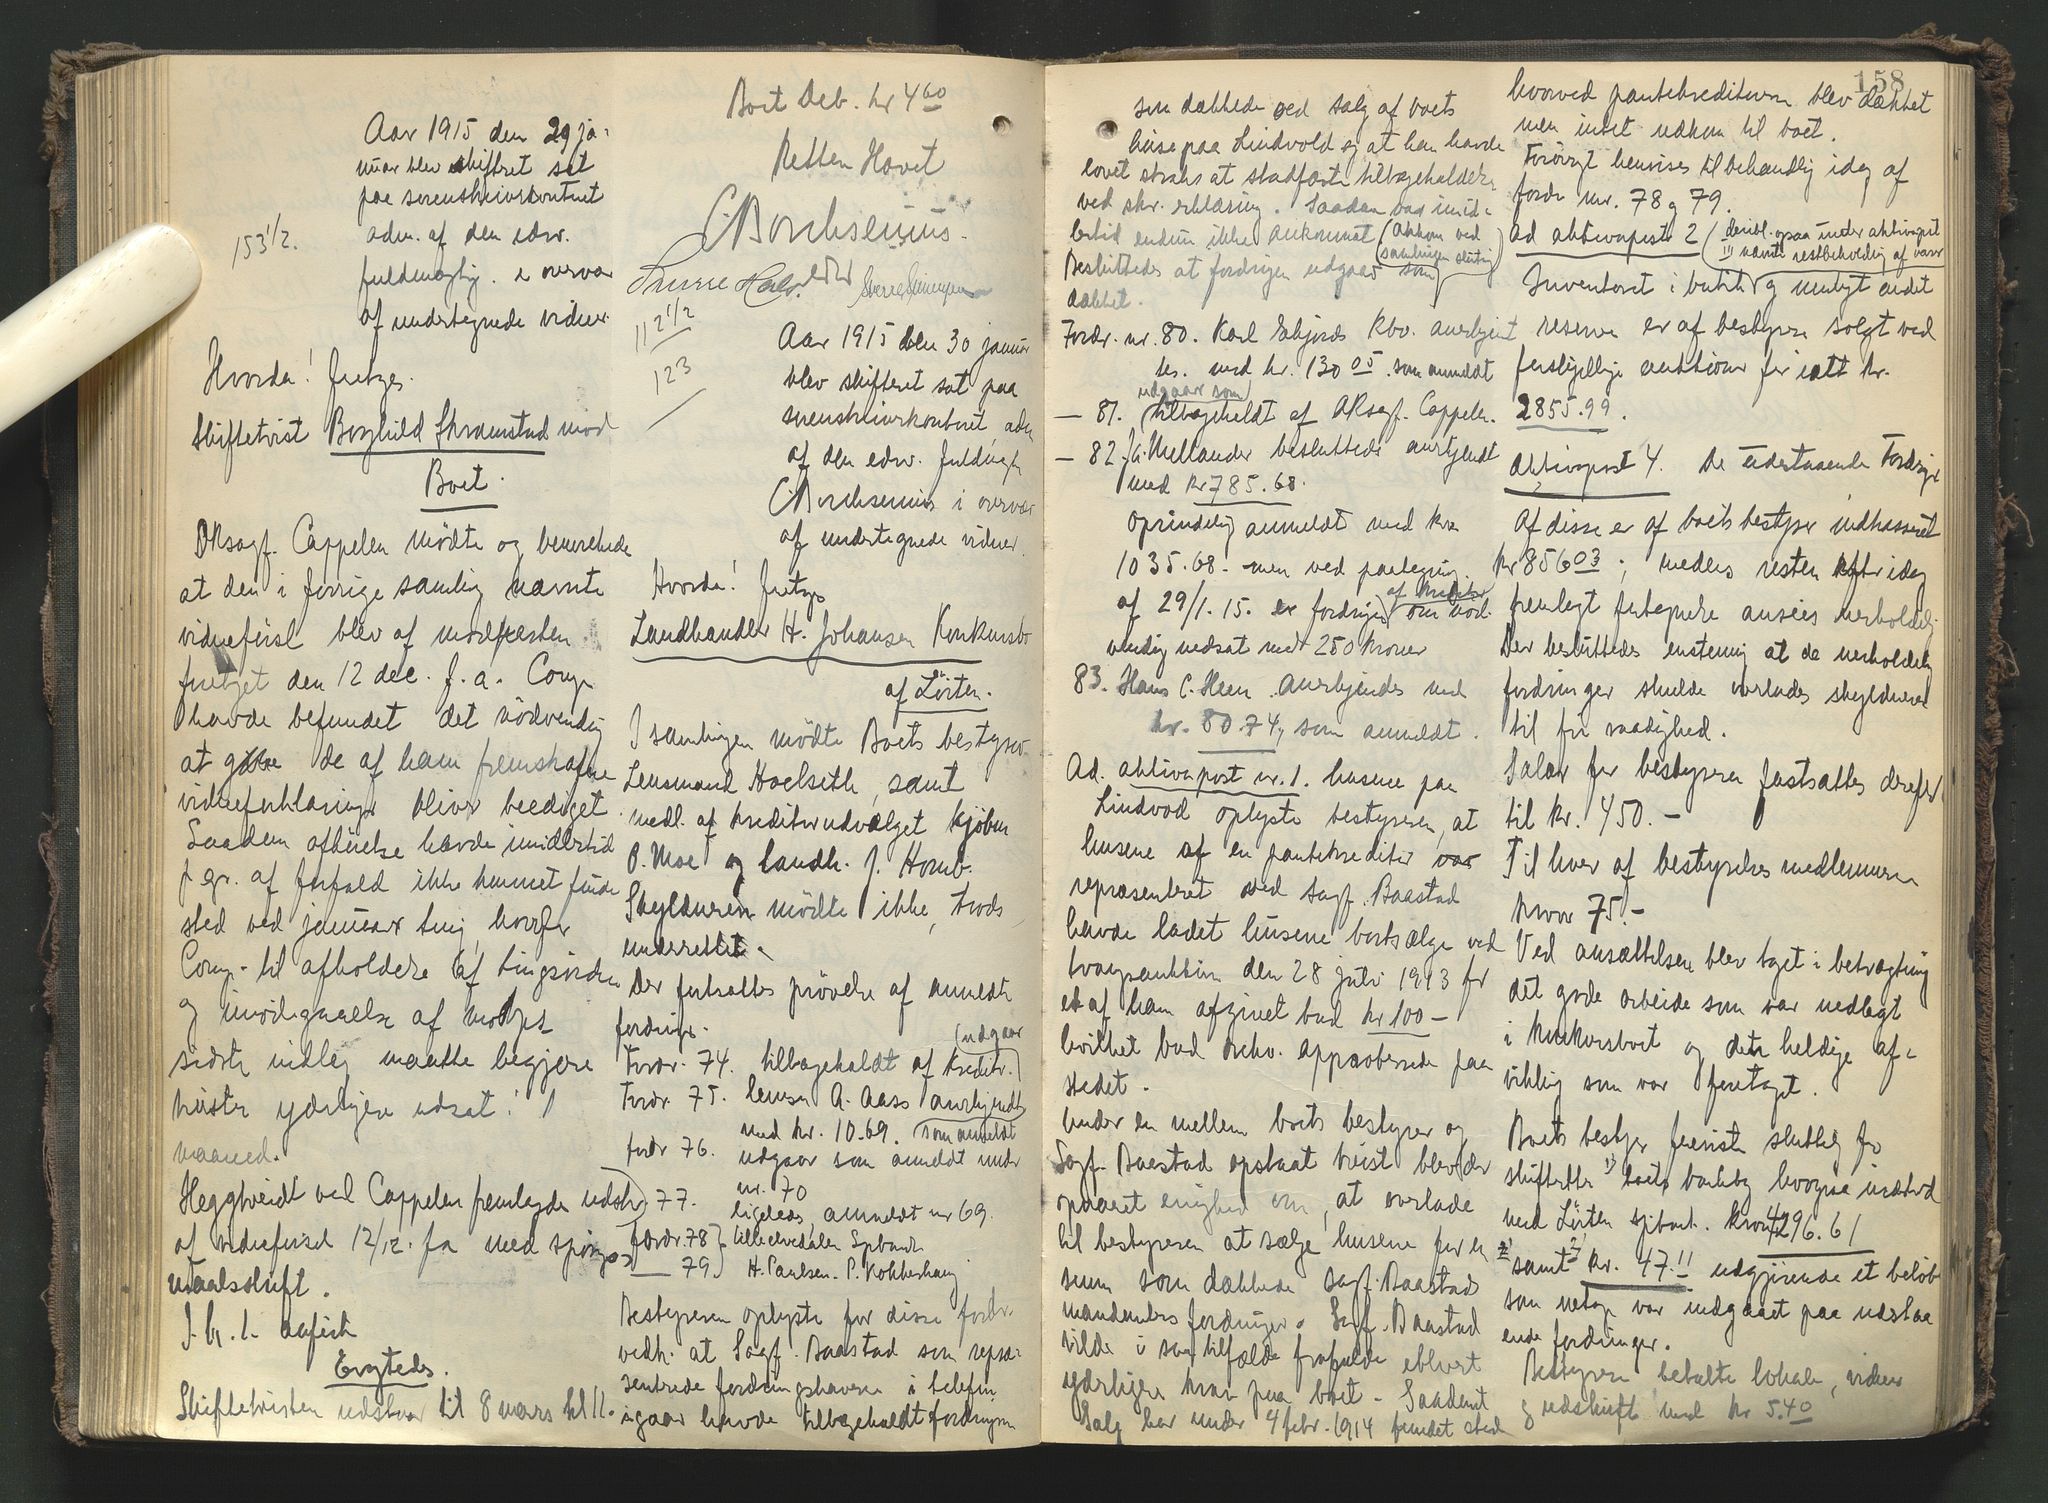 Aar 1915 den 29 ja-
nuar blev skifteret sat
paa sorenskriverkontoret
adm. af den edsv.
fuldmægtig i overvær
af undertegnede vidner.
153 1/2.
Hvorda! Foretoges
Skiftetvist Borghild Skramstad mod
Boet.
ORsagf. Cappelen mødte og bemerkede
at den i forrige samling nævnte
vidneførsel blev af modparten
foretaget den 12 dec. f. a. Comp.
havde befundet det nødvendig
at de af ham fremskafne
vidneforklaringer bliver beediget.
Saadan afhørelse havde imidlertid
p gr. af forfald ikke kunnet finde
sted ved januar ting, hvorfor
Comp. til afholdelse af tingsvidne
og imødegaaelse af modp.
sidste indlæg maatte begjære
tvisten yderligere udsat 1
maaned.
Heggtveidt ved Cappelen fremlagde udskr.
af vidneførsel 12/12. fa med spørgs-
maalsskrift.
Eragtedes.
Skiftetvisten udstaar til 8 mars kl 11.
Boet Deb. kr 4 60
Retten Hævet
C. Borchsenius.
112 1/2
123
Aar 1915 den 30 januar
blev skifteret sat paa
sorenskriverkontoret, adm
af den edsv. fuldmægtig
C Borchsenius i overvær
af undertegnede vidner.
Hvorda! Foretoges
Landhandler H. Johansen Konkursbo
af Lörten.
I samlingen mødte Boets bestyrer
Lensmand Hoelseth, samt
medl. af kreditorudvalget kjøbm.
O. Moe og landh. J. Homb.
Skyldneren mødte ikke, trods
underrettet.
Der fortsattes prøvelse af anmeldte
fordringer.
Fordr. 74. tilbageholdt af kreditor. (udgaar)
Fordr. 75. A. Aass anerkjendt
med kr. 10.69. som anmeldt
fordr 76. udgaar som anmeldt under
nr. 70
77. ligeledes, anmeldt nr 69.
Fordr. 78 Lilleelvedalen Spbank
— 79 H. Paulsen.
Bestyreren oplyste for disse fordr.
vedk. at Sagf. Baastad som repræ-
senterede fordringshaveren i telefon
igaar havde tilbageholdt fordringen
158
som dækkede ved salg af boets
huse paa Lindvold og at han havde
lovet straks at stadfæste tilbageholdelse
ved skr. erklæring. Saadan var imid-
lertid endnu ikke ankommet (ankom ved
samlingens slutning)
Besluttedes at fordringen udgaar som
dækket.
Fordr. nr. 80. Karl kbo. anerkjend-
tes. med kr. 130 05. som anmeldt
— 81. udgaar som tilbageholdt af ORsagf. Cappelen.
— 82. Mellander besluttedes anerkjendt
med kr 785.68.
oprindelig anmeldt med kr
1035.68 - men ved paategning
af 29/1. 15. er fordringen af kreditor
nedsat med 250 kroner
83. Hans C. Heen. anerkjendes med
kr. 80.74, som anmeldt.
Ad. aktivapost nr. 1. husene paa
Lindvod oplyste bestyreren, at
husene af en pantekreditor var
repræsenteret ved sagf. Baastad
havde ladet husene bortsælge ved
tvangsauktion den 28 juli 1913 for
et af ham afgivet bud kr 100 -
hvilket bud approberede paa
stedet.
Under en mellem boets bestyrer og
Sagf. Baastad opstaat tvist blev der
opnaaet enighed om, at overlade
til bestyreren at sælge husene for en
sum som dækkede sagf. Baastad
mandanters fordringer. Sagf. Baastad
vilde i saa tilfælde frafalde ethvert
yderligere krav paa boet. Saadant
Salg har under 4 febr. 1914 fundet sted
hvorved pantekreditoren blev dækket
men intet udkom til boet.
Forøvrigt henvises til behandling idag af
fordr. nr. 78 og 79.
ad aktivapost 2 (deribl. ogsaa under aktivapost
11 nævnte restbeholdning af varer
Inventaret i butik og muligt andet
reserve er af bestyrer solgt ved
forskjellige auktioner for ialt kr.
2855.99.
Aktivapost 4. De udestaaende Fordringer
Af disse er af boets bestyrer indkasseret
kr 856 03; medens resten efter idag
fremlagt fortegnelse ansees uerholdelig.
Der besluttedes enstemmig at de uerholdelige
fordringer skulde overlades skyldneren
til fri raadighed.
Salær for bestyreren fastsattes derefter
til kr. 450.-
Til hver af bestyrelses medlemmerne
kroner 75.-
Ved ansættelsen blev taget i betragtning
det gode arbeide som var nedlagt
i konkursboet og den heldige af-
vikling som var foretaget.
Boets bestyrer foreviste sluttelig for
skifteretten 1) boets bankbog hvorpaa indestod
med Lörten spbank. kroner 4296.61
samt 2) kr. 47.11 udgjørende et beløb
som netop var indgaaet paa udstaa-
ende fordringer.
Bestyreren betalte lokale, vidner
og udskrift med kr 5.40